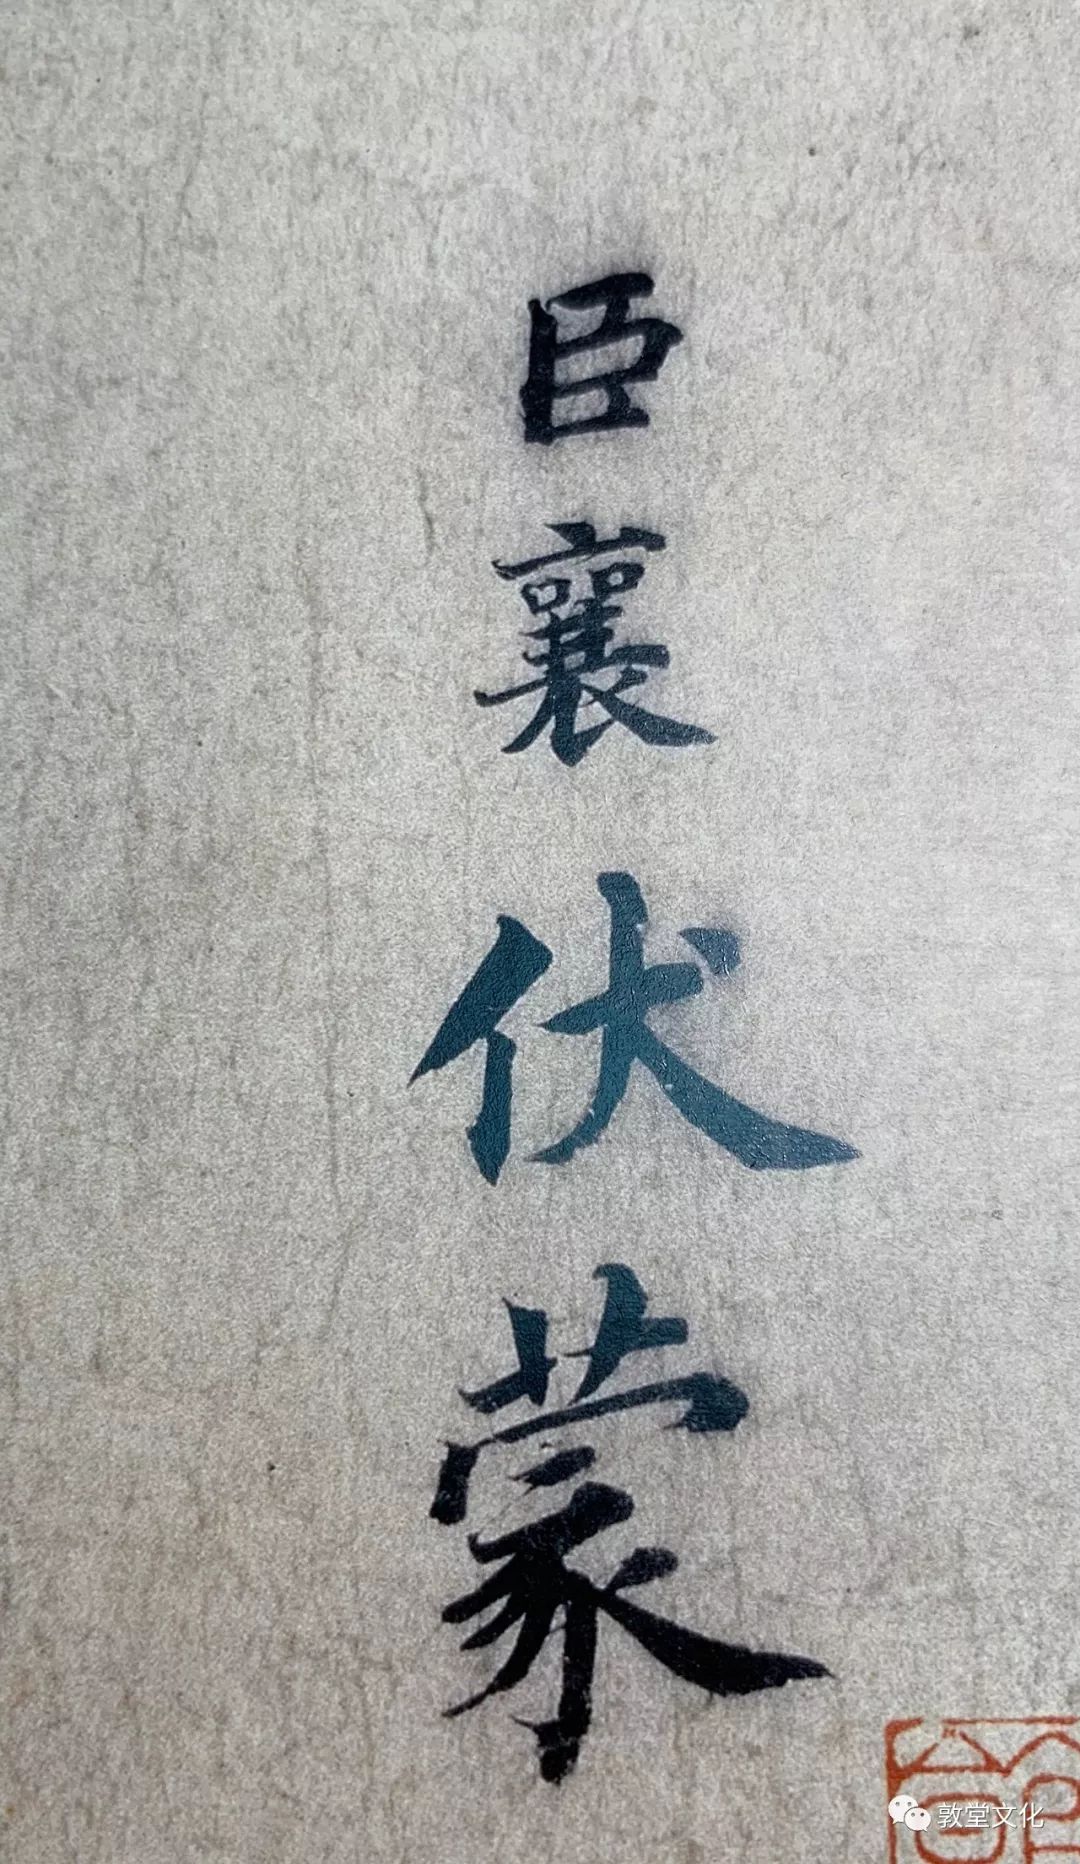 臣襄伏蒙
敦堂文化